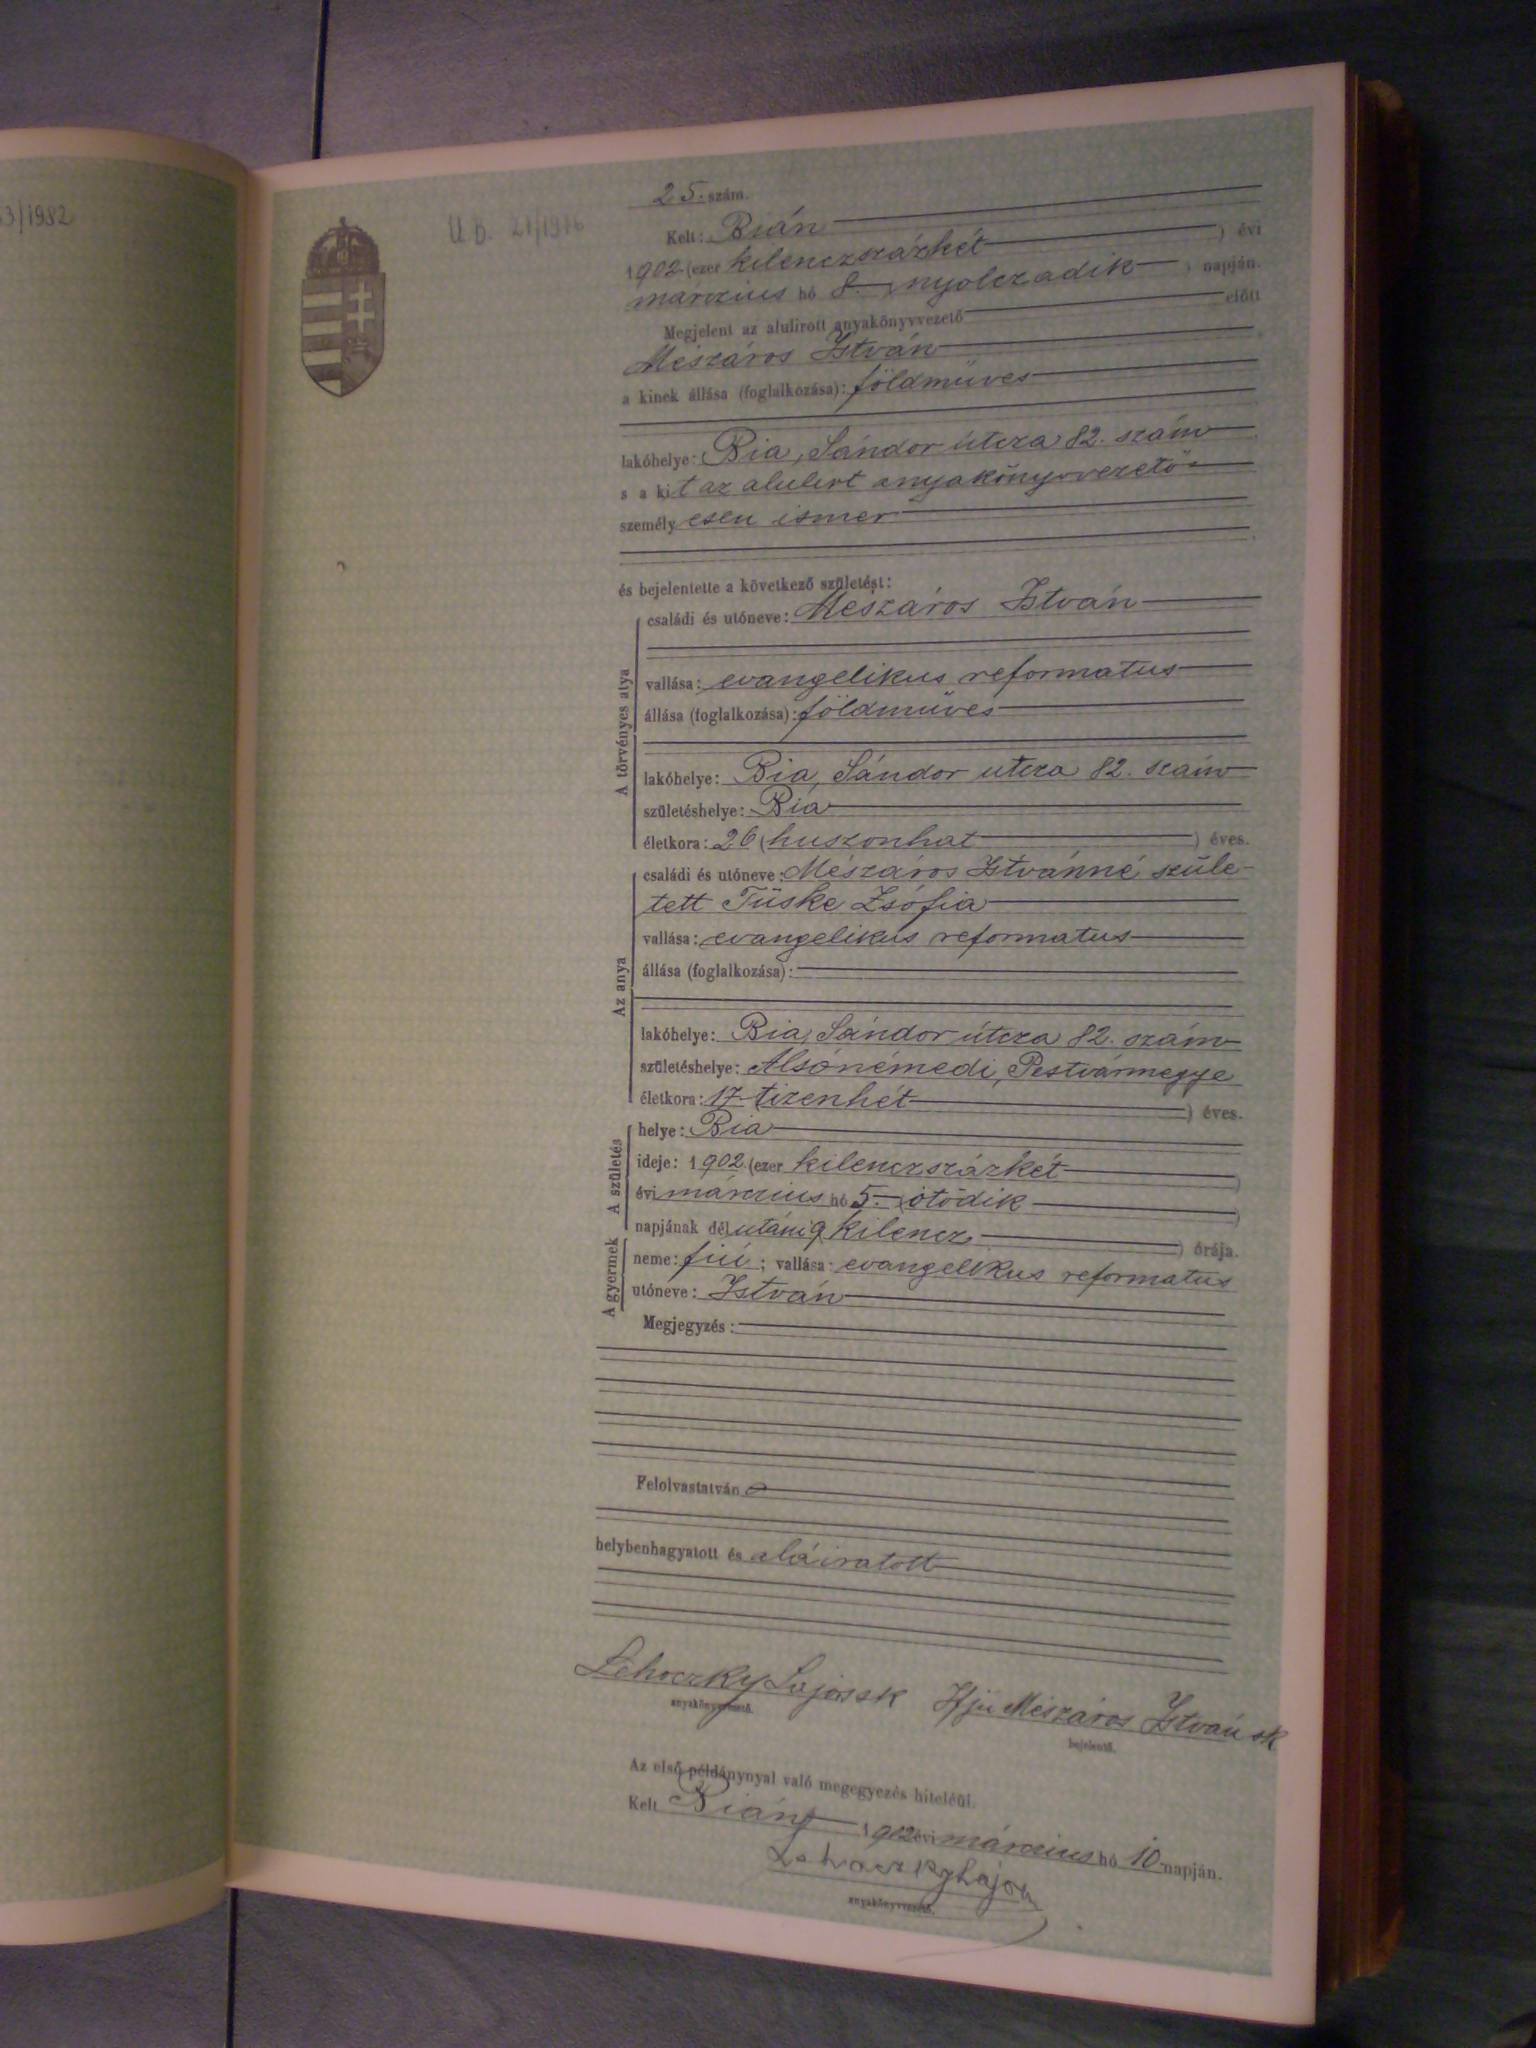 53/1982
U.B. 21/1916
25. szám.
Kelt: Bián
1902 (ezer kilenczszázkét ) évi
márczius hó 8. (nyolczadik ) napján.
Megjelent az alulirott anyakönyvvezető előtt
Mészáros István
a kinek állása (foglalkozása): földmüves
lakóhelye: Bia, Sándor útcza 82. szám
s a kit az alulirt anyakönyvvezető
személyesen ismer
és bejelentette a következő születést:
A törvényes atya
családi és utóneve: Mészáros István
vallása: evangelikus reformatus
állása (foglalkozása): földmüves
lakóhelye: Bia, Sándor utcza 82. szám
születéshelye: Bia
életkora: 26 (huszonhat ) éves.
Az anya
családi és utóneve: Mészáros Istvánné szüle-
tett Tüske Zsófia
vallása: evangelikus reformatus
állása (foglalkozása):
lakóhelye: Bia, Sándor útcza 82. szám
születéshelye: Alsónémedi, Pestvármegye
életkora: 17 tizenhét ) éves.
A születés
helye: Bia
ideje: 1902. (ezer kilenczszázkét )
évi márczius hó 5. (ötödik )
napjának délutáni 9 kilencz ) órája.
A gyermek
neme: fiú; vallása: evangelikus reformatus
utóneve: István
Megjegyzés:
Felolvastatván
helybenhagyatott és aláiratott
Lehoczky Lajos sk Ifjú Mészáros István sk
anyakönyvvezető. bejelentő.
Az első példánynyal való megegyezés hiteléül.
Kelt Bián, 1902 évi márczius hó 10 napján.
Lehoczky Lajos
anyakönyvvezető.